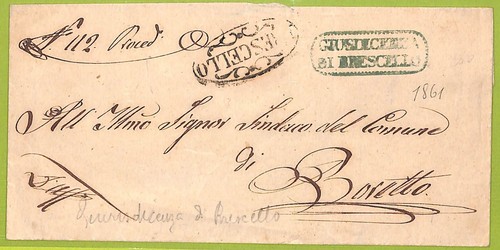 N. 112. Proced.
BRESCELLO
GIUSDICENZA
DI BRESCELLO
1861
All' Illmo Signor Sindaco del Comune
di
Boretto
Giurisdicenza di Brescello